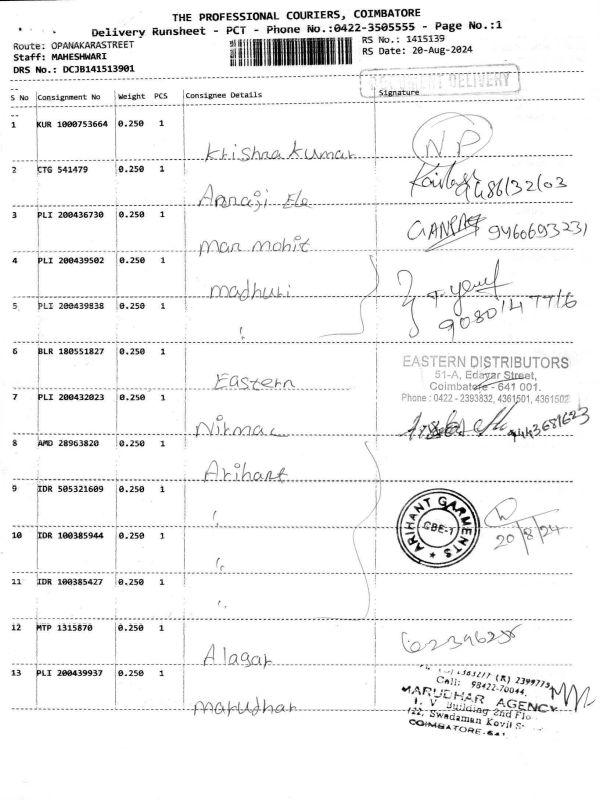 THE PROFESSIONAL COURIERS, COIMBATORE
Delivery Runsheet - PCT - Phone No.:0422-3505555 - Page No.:1
Route: OPANAKARASTREET
RS No.: 1415139
Staff: MAHESHWARI
RS Date: 20-Aug-2024
DRS No.: DCJB141513901
DELIVERY
S No Consignment No Weight PCS Consignee Details Signature
1 KUR 1000753664 0.250 1 Krishnakumar NP
2 CTG 541479 0.250 1 Annaji Ele
3 PLI 200436730 0.250 1 Man mohit GANPAT 9460693231
4 PLI 200439502 0.250 1 madhuri
5 PLI 200439838 0.250 1 "
9080147716
6 BLR 180551827 0.250 1 Eastern
EASTERN DISTRIBUTORS
51-A, Edayar Street,
Coimbatore - 641 001.
Phone : 0422 - 2393832, 4361501, 4361502
7 PLI 200432023 0.250 1 Nirmac 9443681623
8 AMD 28963820 0.250 1 Arihant
9 IDR 505321609 0.250 1 "
ARIHANT GARMENTS
CBE-1
20/8/24
10 IDR 100385944 0.250 1 "
11 IDR 100385427 0.250 1 "
12 MTP 1315870 0.250 1 Alagar
13 PLI 200439937 0.250 1 marudhar
(R) 2399775
Cell: 98422-70044,
MARUDHAR AGENCY
Building 2nd Flo
122, Swadaman Kovil S
COIMBATORE-641